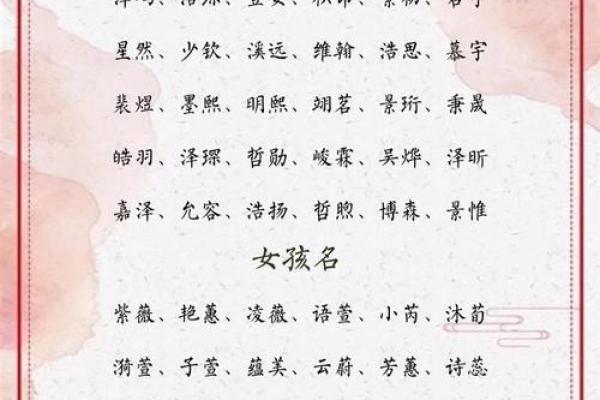 星然、少钦、溪远、维翰、浩思、慕宇
裴煜、墨熙、明熙、翊茗、景珩、秉晟
皓羽、泽琛、哲勋、峻霖、吴烨、泽昕
嘉泽、允容、浩扬、哲煦、博森、景惟
女孩名
紫薇、艳蕙、凌薇、语萱、小芮、沐荀
漪萱、子萱、蕴美、云蔚、芳蕙、诗蕊